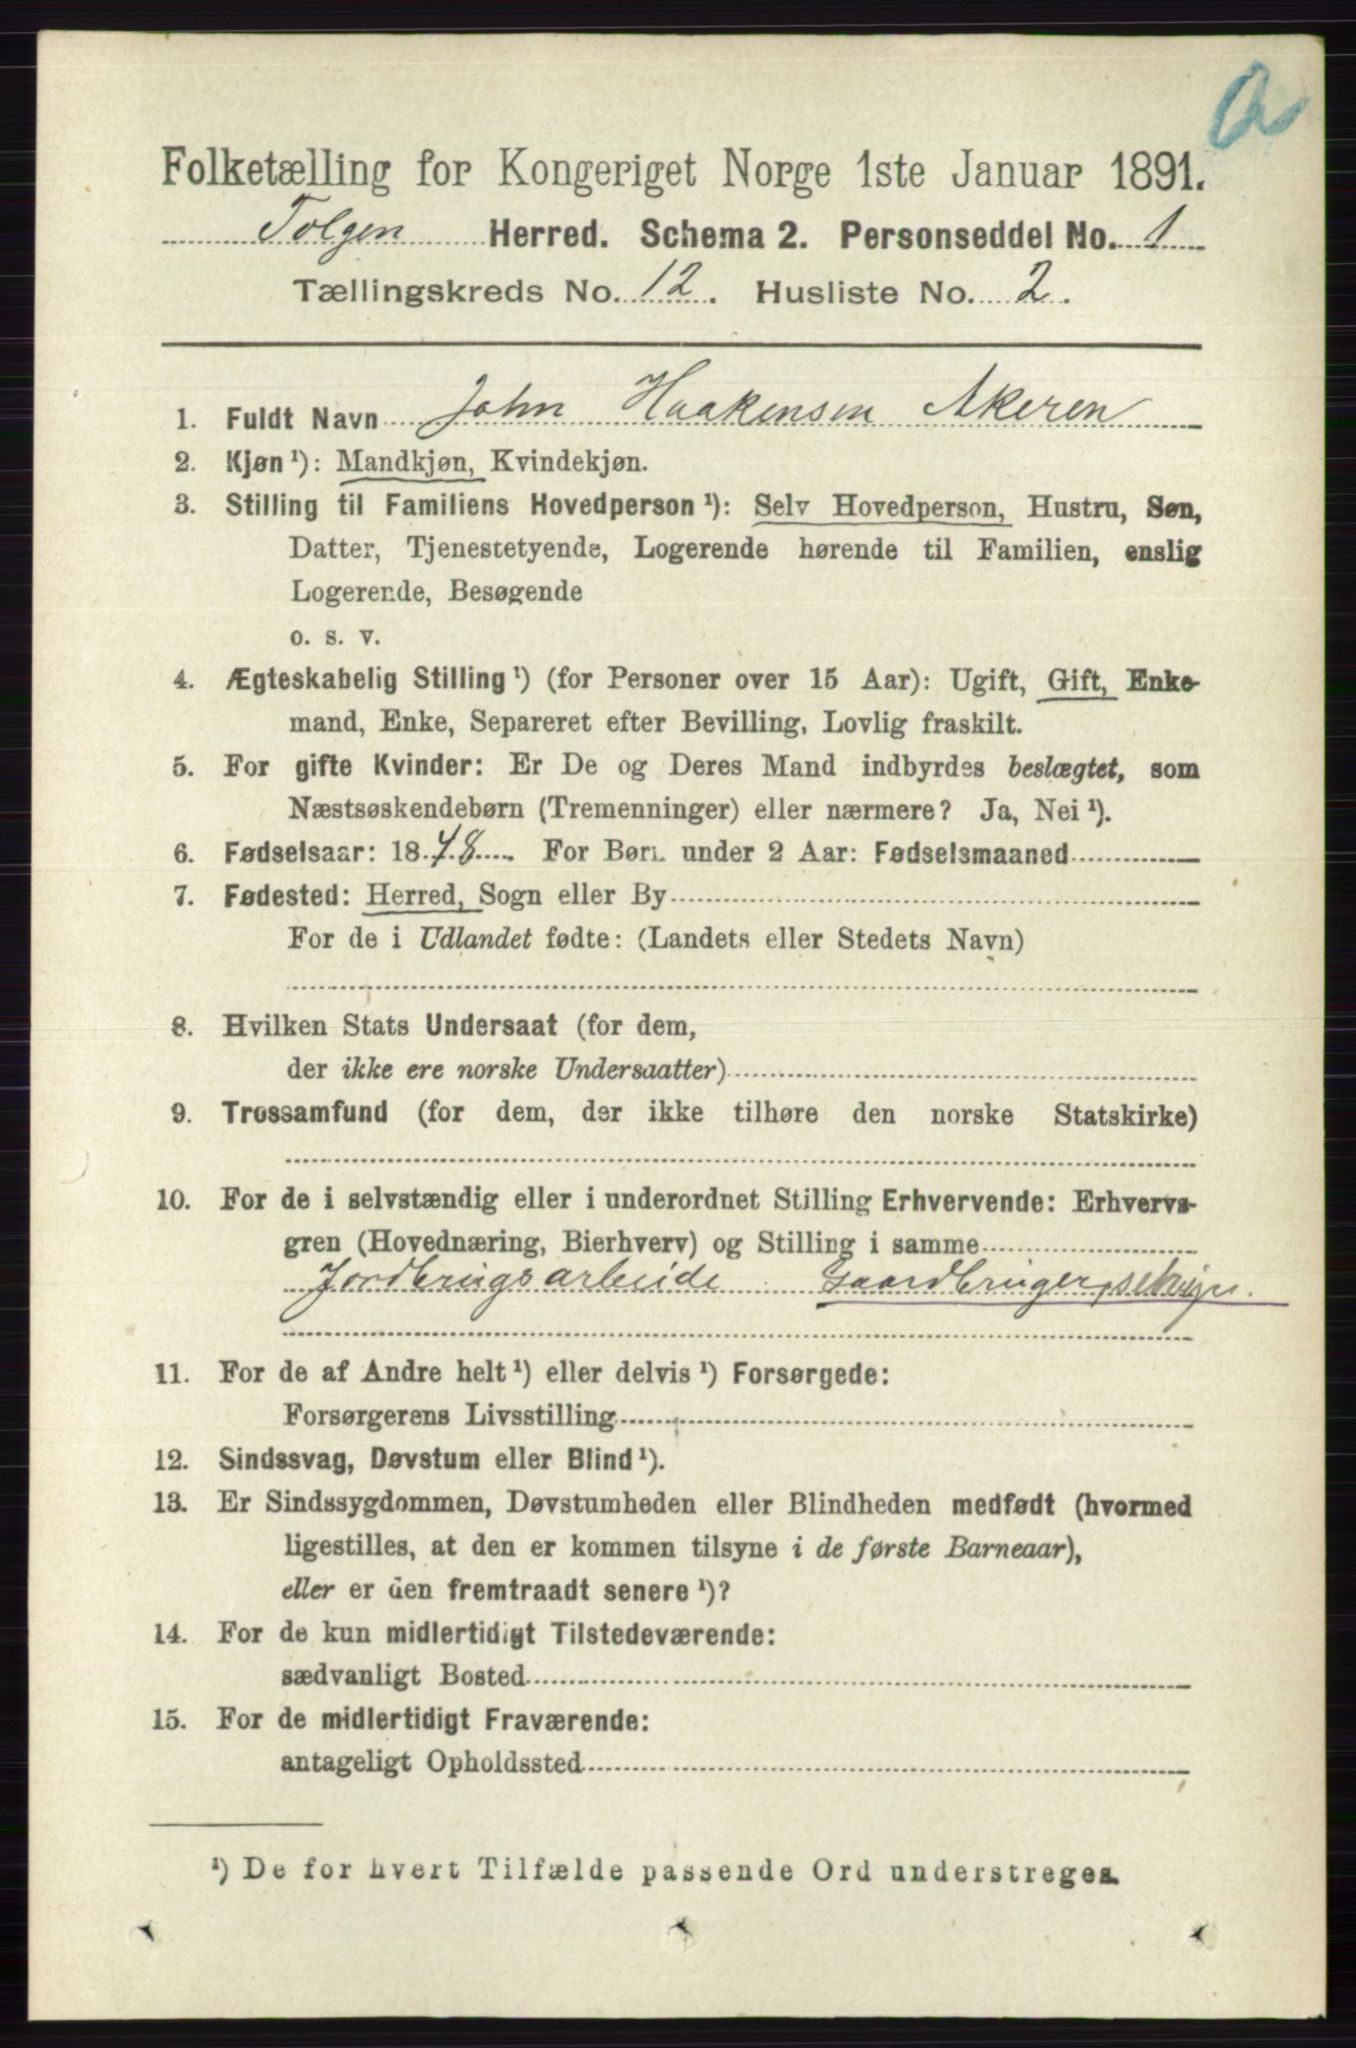 a
Folketælling for Kongeriget Norge 1ste Januar 1891.
Tolgen Herred. Schema 2. Personseddel No. 1
Tællingskreds No. 12. Husliste No. 2.
1. Fuldt Navn John Haakensen Akeren
2. Kjøn ¹): Mandkjøn, Kvindekjøn.
3. Stilling til Familiens Hovedperson ¹): Selv Hovedperson, Hustru, Søn,
Datter, Tjenestetyende, Logerende hørende til Familien, enslig
Logerende, Besøgende
o. s. v.
4. Ægteskabelig Stilling ¹) (for Personer over 15 Aar): Ugift, Gift, Enke-
mand, Enke, Separeret efter Bevilling, Lovlig fraskilt.
5. For gifte Kvinder: Er De og Deres Mand indbyrdes beslægtet, som
Næstsøskendebørn (Tremenninger) eller nærmere? Ja, Nei ¹).
6. Fødselsaar: 1848. For Børn under 2 Aar: Fødselsmaaned
7. Fødested: Herred, Sogn eller By
For de i Udlandet fødte: (Landets eller Stedets Navn)
8. Hvilken Stats Undersaat (for dem,
der ikke ere norske Undersaatter)
9. Trossamfund (for dem, der ikke tilhøre den norske Statskirke)
10. For de i selvstændig eller i underordnet Stilling Erhvervende: Erhvervs-
gren (Hovednæring, Bierhverv) og Stilling i samme
Jordbrugsarbeide Gaardbruger, selveier.
11. For de af Andre helt ¹) eller delvis ¹) Forsørgede:
Forsørgerens Livsstilling
12. Sindssvag, Døvstum eller Blind ¹).
13. Er Sindssygdommen, Døvstumheden eller Blindheden medfødt (hvormed
ligestilles, at den er kommen tilsyne i de første Barneaar),
eller er den fremtraadt senere ¹)?
14. For de kun midlertidigt Tilstedeværende:
sædvanligt Bosted
15. For de midlertidigt Fraværende:
antageligt Opholdssted
¹) De for hvert Tilfælde passende Ord understreges.